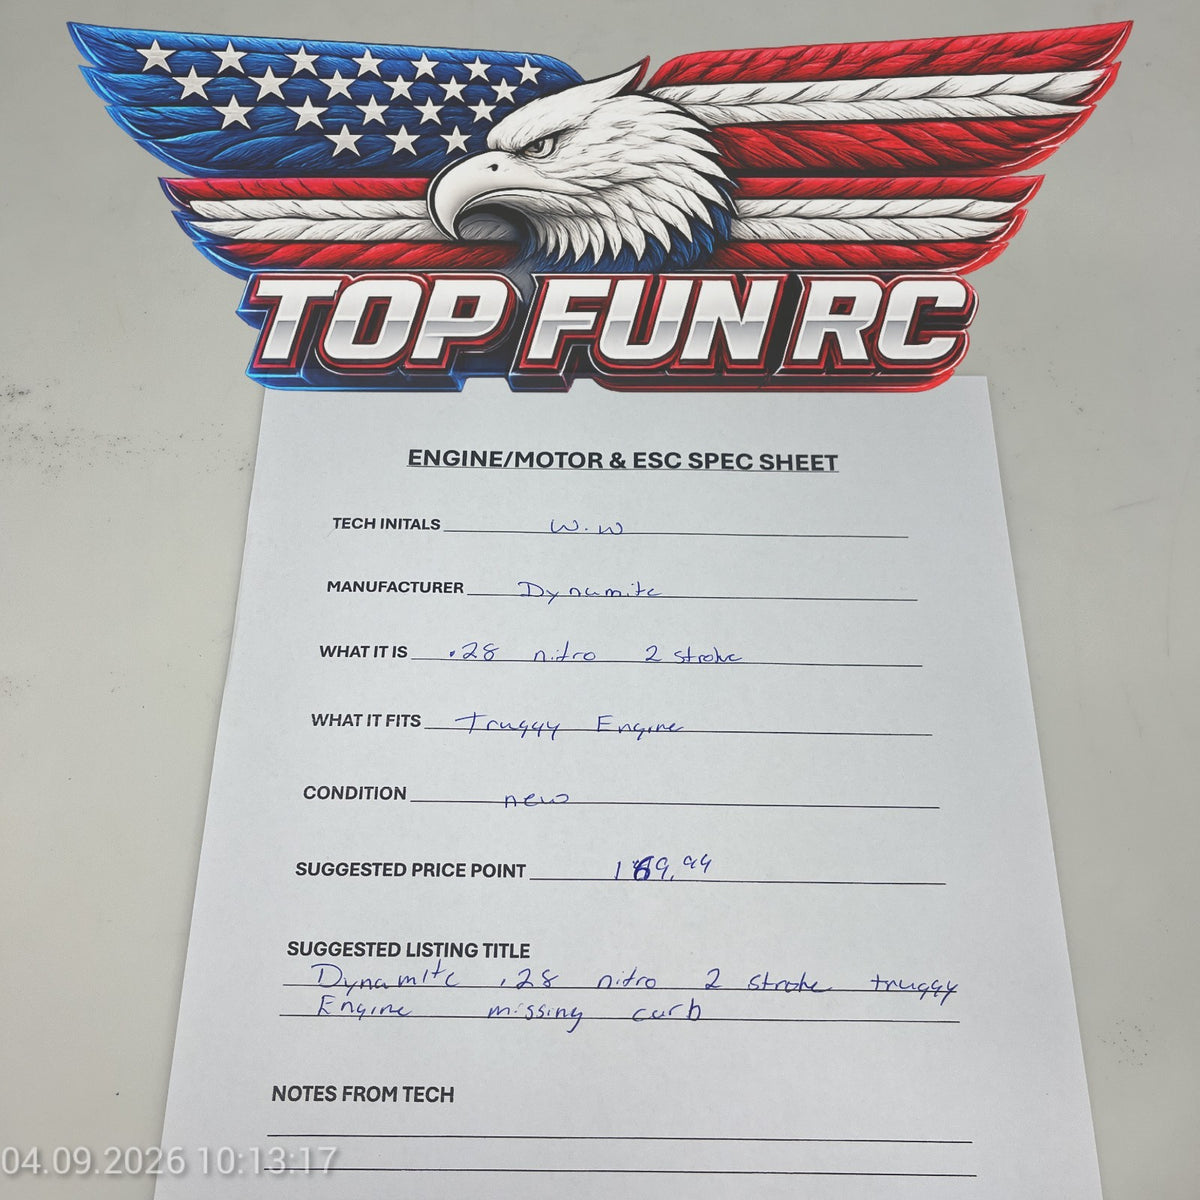 TOP FUN RC
ENGINE/MOTOR & ESC SPEC SHEET
TECH INITALS W.W
MANUFACTURER Dynamite
WHAT IT IS .28 nitro 2 stroke
WHAT IT FITS Truggy Engine
CONDITION new
SUGGESTED PRICE POINT 169.99
SUGGESTED LISTING TITLE
Dynamite .28 nitro 2 stroke truggy
Engine missing carb
NOTES FROM TECH
04.09.2026 10:13:17